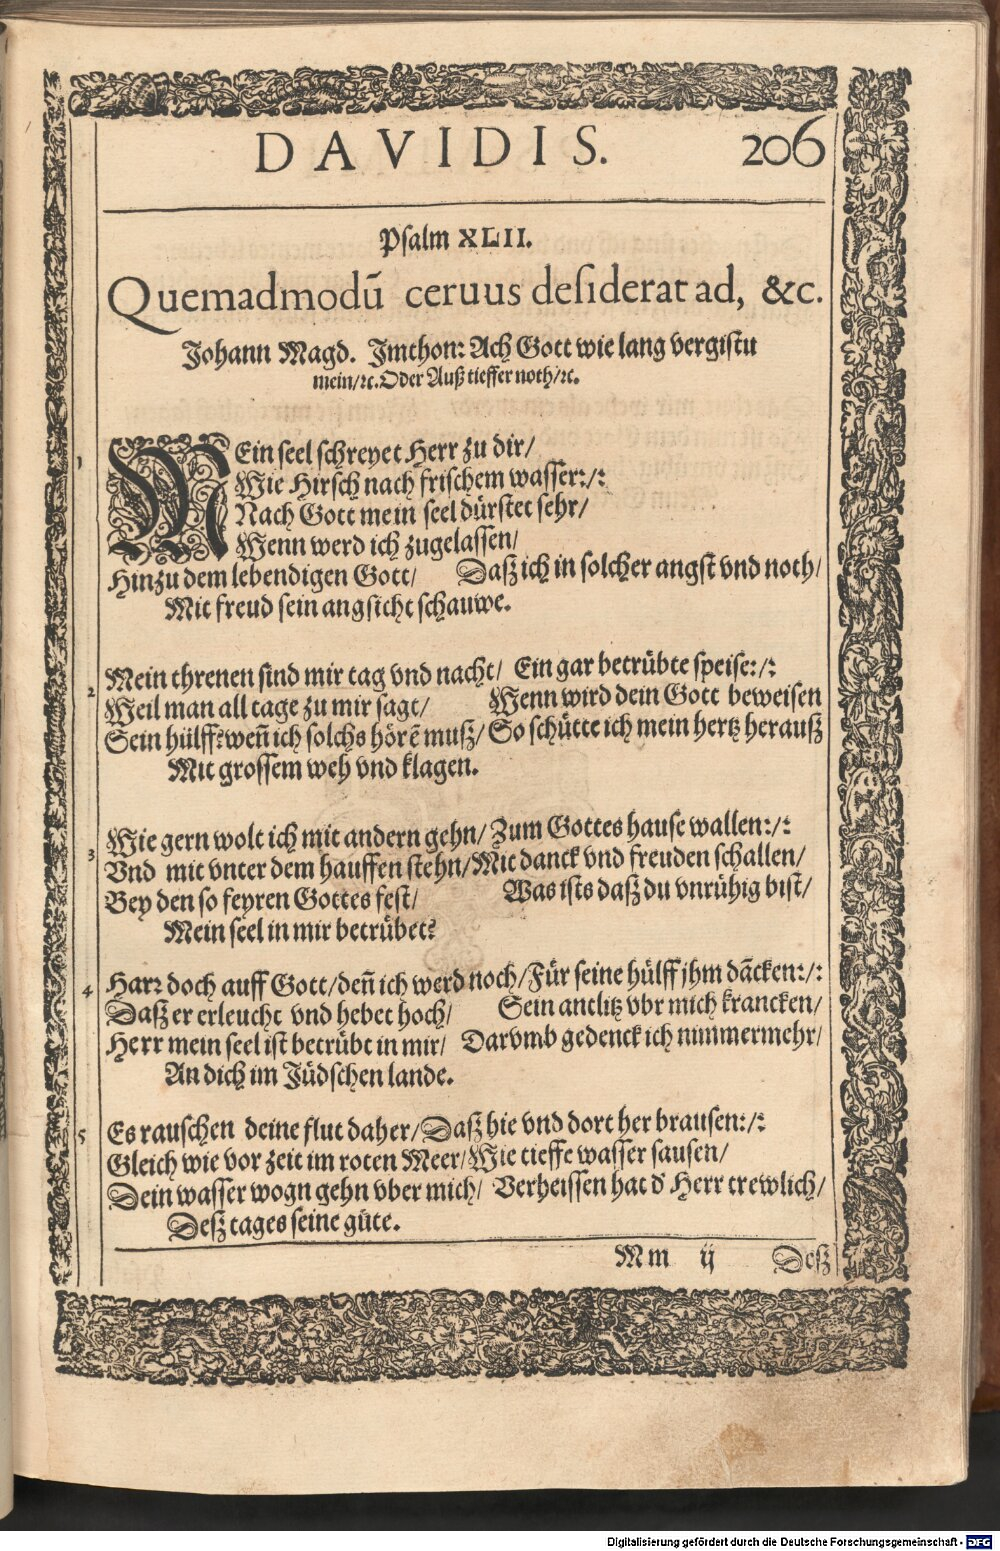 DAVIDIS. 206
Psalm XLII.
Quemadmodū ceruus desiderat ad, &c.
Johann Magd. Jmthon: Ach Gott wie lang vergistu
mein/ꝛc. Oder Auß tieffer noth/ꝛc.
1 MEin seel schreyet Herr zu dir/
Wie Hirsch nach frischem wasser:/:
Nach Gott mein seel dürstet sehr/
Wenn werd ich zugelassen/
Hinzu dem lebendigen Gott/ Daß ich in solcher angst vnd noth/
Mit freud sein angsicht schauwe.
2 Mein threnen sind mir tag vnd nacht/ Ein gar betrübte speise:/:
Weil man all tage zu mir sagt/ Wenn wird dein Gott beweisen
Sein hülff? weñ ich solchs hörē muß/ So schütte ich mein hertz herauß
Mit grossem weh vnd klagen.
3 Wie gern wolt ich mit andern gehn/ Zum Gottes hause wallen:/:
Vnd mit vnter dem hauffen stehn/ Mit danck vnd freuden schallen/
Bey den so feyren Gottes fest/ Was ists daß du vnrühig bist/
Mein seel in mir betrübet?
4 Harꝛ doch auff Gott/ deñ ich werd noch/ Für seine hülff jhm dācken:/:
Daß er erleucht vnd hebet hoch/ Sein antlitz vbr mich krancken/
Herr mein seel ist betrübt in mir/ Darvmb gedenck ich nimmermehr/
An dich im Jüdschen lande.
5 Es rauschen deine flut daher/ Daß hie vnd dort her brausen:/:
Gleich wie vor zeit im roten Meer/ Wie tieffe wasser sausen/
Dein wasser wogn gehn vber mich/ Verheissen hat d' Herr trewlich/
Deß tages seine güte.
Mm ij Deß
Digitalisierung gefördert durch die Deutsche Forschungsgemeinschaft - DFG